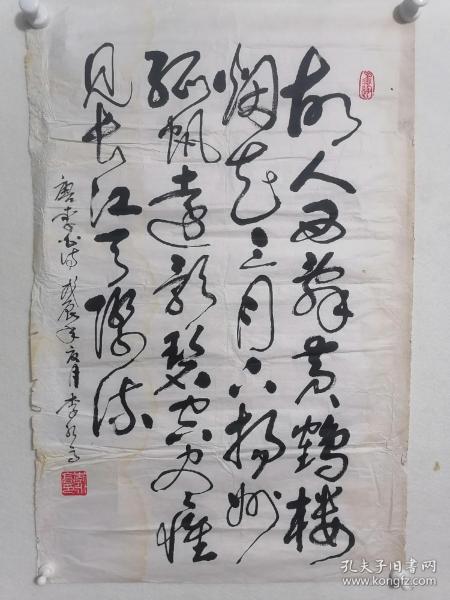 故人西辞黄鶴楼
烟花三月下扬州
孤帆遠影碧空尽惟
见长江天际流
唐李白诗 戊辰年夏月 李
孔夫子旧书网
www.kongfz.com